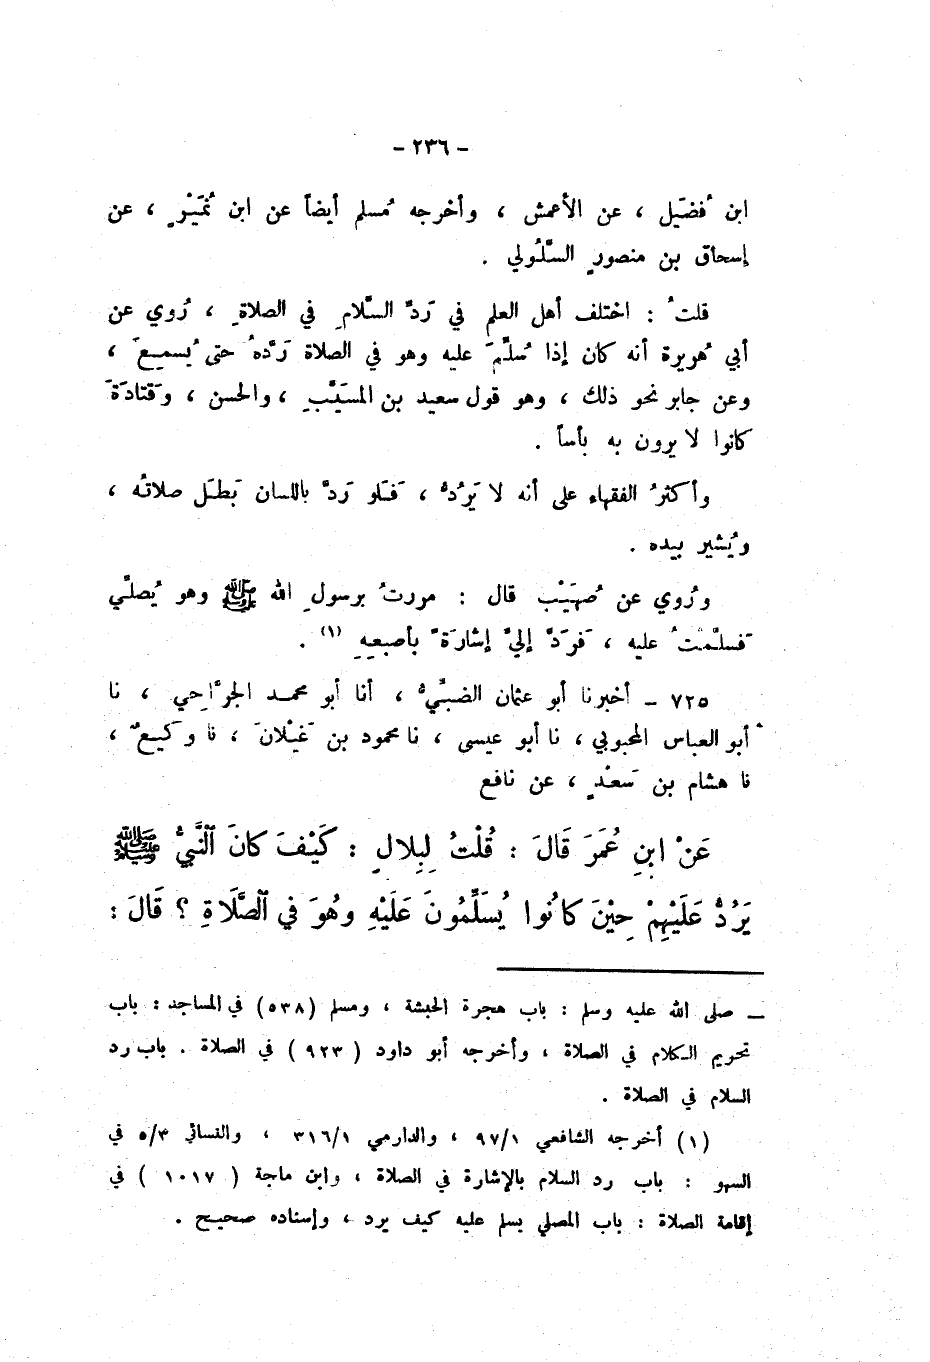 - ٢٣٦ -
ابن فُضَيل ، عن الأعمش ، وأخرجه مُسلم أيضاً عن ابن نُمَيْرٍ ، عن
إسحاق بن منصورٍ السَّلُولي .
قلتُ : اختلف أهل العلم في رَدِّ السَّلامِ في الصلاةِ ، رُوي عن
أبي هُريرة أنه كان إذا سُلِّمَ عليه وهو في الصلاة رَدَّهُ حتى يُسمِعَ ،
وعن جابر نحو ذلك ، وهو قول سعيد بن المسَيَّبِ ، والحسن ، وقَتادَةَ
كانوا لا يرون به بأساً .
وأكثرُ الفقهاء على أنه لا يَرُدُّ ، فَلو رَدَّ باللسان بَطلَ صلاتُه ،
ويُشير بيده .
ورُوي عن صُهَيْب قال : مررتُ برسولِ الله ﷺ وهو يُصلّي
فَسلَّمْتُ عليه ، فَرَدَّ إليَّ إشارَةً بأصبعِهِ (١) .
٧٢٥ - أخبرنا أبو عثمان الضبِّيُّ ، أنا أبو محمد الجرَّاحِي ، نا
أبو العباس المحبوبي ، نا أبو عيسى ، نا محمود بن غَيْلانَ ، نا وَكيعٌ ،
نا هشام بن سَعْدٍ ، عن نافع
عَنْ ابنِ عُمَرَ قَالَ : قُلْتُ لِبِلالٍ : كَيْفَ كانَ ٱلنَّبيُّ ﷺ
يَرُدُّ عَلَيْهِمْ حِيْنَ كانُوا يُسَلِّمُونَ عَلَيْهِ وهُوَ في ٱلصَّلَاةِ ؟ قَالَ :
— صلى الله عليه وسلم : باب هجرة الحبشة ، ومسلم (٥٣٨) في المساجد : باب
تحريم الكلام في الصلاة ، وأخرجه أبو داود ( ٩٢٣ ) في الصلاة . باب رد
السلام في الصلاة .
(١) أخرجه الشافعي ٩٧/١ ، والدارمي ٣١٦/١ ، والنسائي ٥/٣ في
السهو : باب رد السلام بالإشارة في الصلاة ، وابن ماجة ( ١٠١٧ ) في
إقامة الصلاة : باب المصلي يسلم عليه كيف يرد ، وإسناده صحيح .